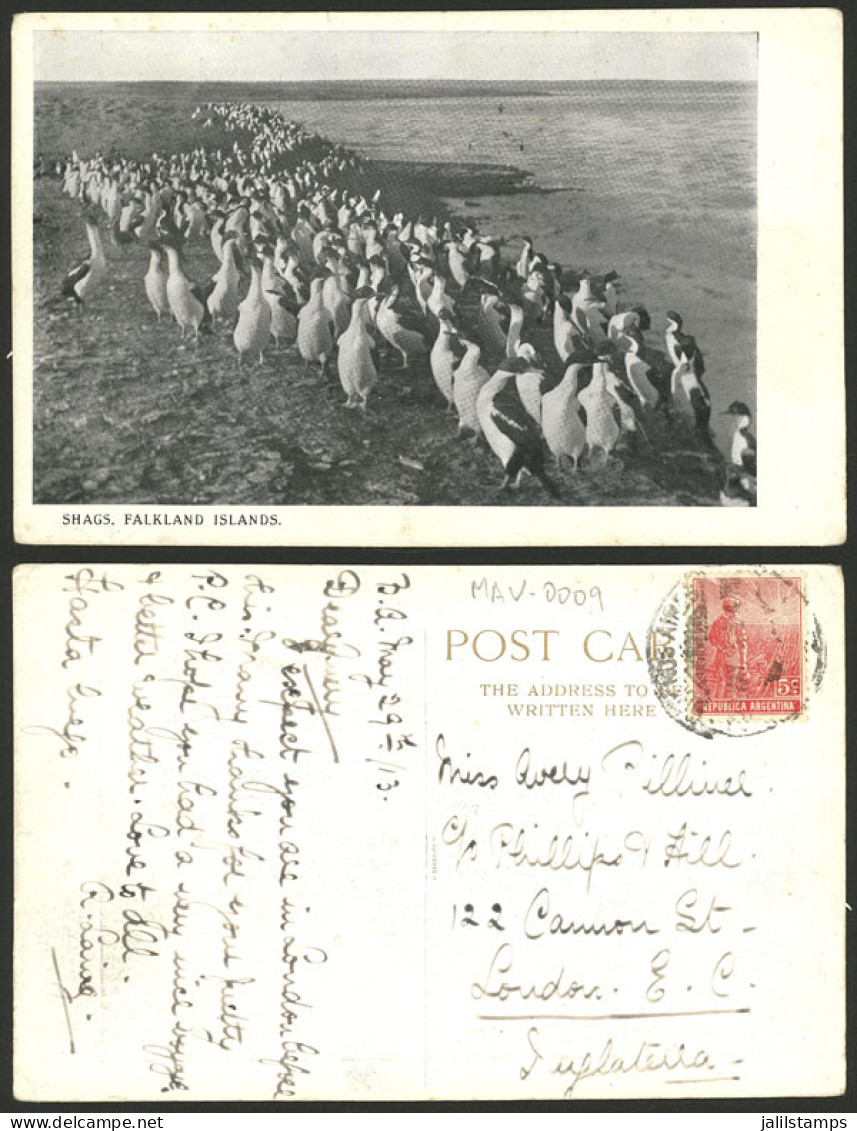 SHAGS, FALKLAND ISLANDS.
MAV-0009
POST CAR
THE ADDRESS TO BE
WRITTEN HERE
5c
REPUBLICA ARGENTINA
B.A. May 29th /13.
Dear
I expect you are in London before
this. Many thanks for your pretty
P.C. I hope you had a very nice voyage
& better weather. Love to all.
Hasta luego.
Miss Avery
c/o Phillips & Hill.
122 Cannon St-
London. E. C.
Inglaterra-
jalilstamps